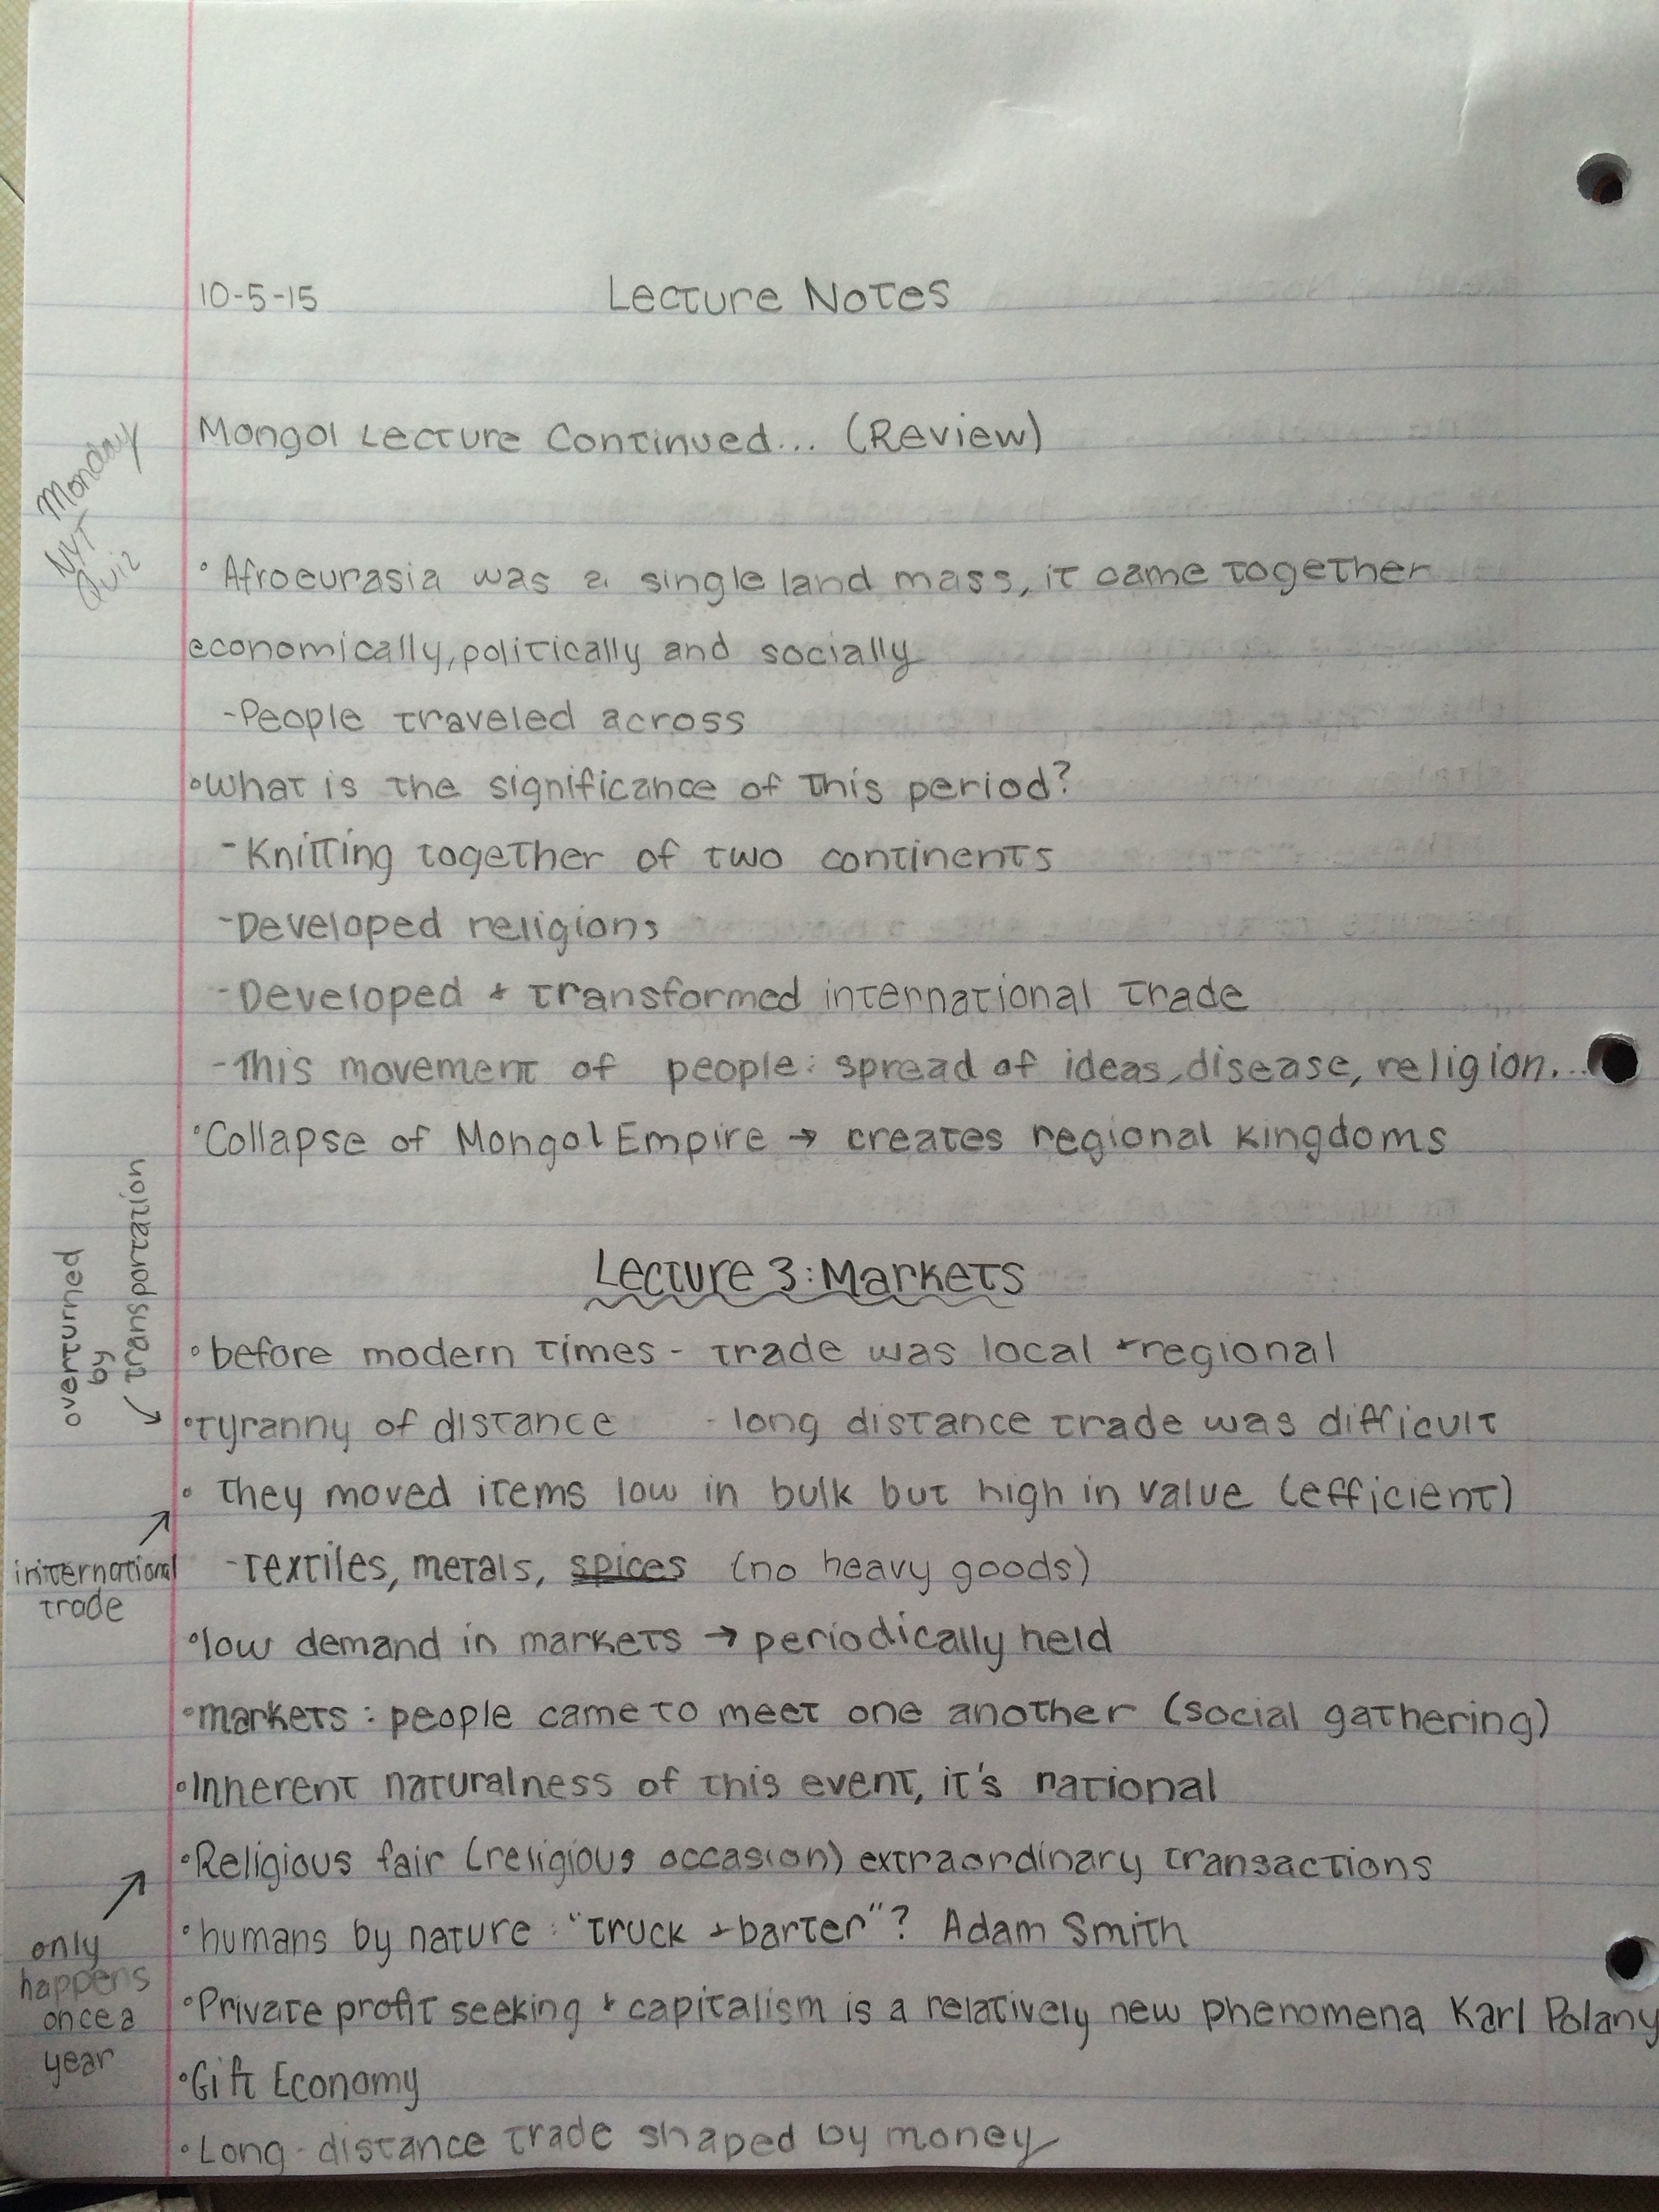 10-5-15 Lecture Notes
Mongol Lecture Continued... (Review)
Monday
NYT
Quiz
• Afroeurasia was a single land mass, it came together
economically, politically and socially
-People traveled across
• What is the significance of this period?
- Knitting together of two continents
-Developed religions
-Developed + transformed international trade
-This movement of people: spread of ideas, disease, religion...
• Collapse of Mongol Empire → creates regional kingdoms
Lecture 3: Markets
overturned
by
transportation
• before modern times - trade was local + regional
• tyranny of distance - long distance trade was difficult
• they moved items low in bulk but high in value (efficient)
international
trade
-textiles, metals, spices (no heavy goods)
• low demand in markets → periodically held
• markets: people came to meet one another (social gathering)
• Inherent naturalness of this event, it's national
• Religious fair (religious occasion) extraordinary transactions
only
happens
once a
year
• humans by nature: "truck + barter"? Adam Smith
• Private profit seeking + capitalism is a relatively new phenomena Karl Polany
• Gift Economy
• Long-distance trade shaped by money